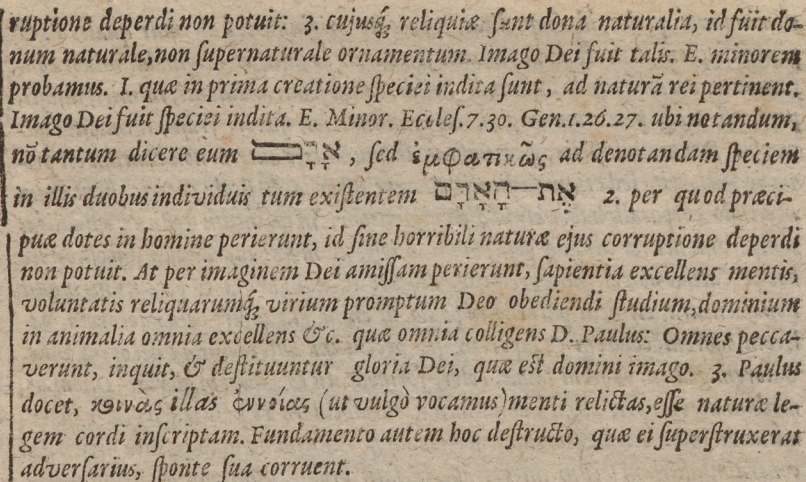 ruptione deperdi non potuit: 3. cujusq́; reliquiæ ſunt dona naturalia, id fuit do-
num naturale, non ſupernaturale ornamentum. Imago Dei fuit talis. E. minorem
probamus. I. quæ in prima creatione ſpeciei indita ſunt, ad naturā rei pertinent.
Imago Dei fuit ſpeciei indita. E. Minor. Eccleſ. 7.30. Gen. 1.26.27. ubi notandum,
nō tantum dicere eum אָדָם, ſed ἐμφατικῶς ad denotandam ſpeciem
in illis duobus individuis tum exiſtentem אֶת־הָאָדָם 2. per quod præci-
puæ dotes in homine perierunt, id ſine horribili naturæ ejus corruptione deperdi
non potuit. At per imaginem Dei amiſſam perierunt, ſapientia excellens mentis,
voluntatis reliquarumq́; virium promptum Deo obediendi ſtudium, dominium
in animalia omnia excellens &c. quæ omnia colligens D. Paulus: Omnes pecca-
verunt, inquit, & deſtituuntur gloria Dei, quæ eſt domini imago. 3. Paulus
docet, κοινὰς illas ἐννοίας (ut vulgò vocamus) menti relictas, eſſe naturæ le-
gem cordi inſcriptam. Fundamento autem hoc deſtructo, quæ ei ſuperſtruxerat
adverſarius, ſponte ſua corruent.